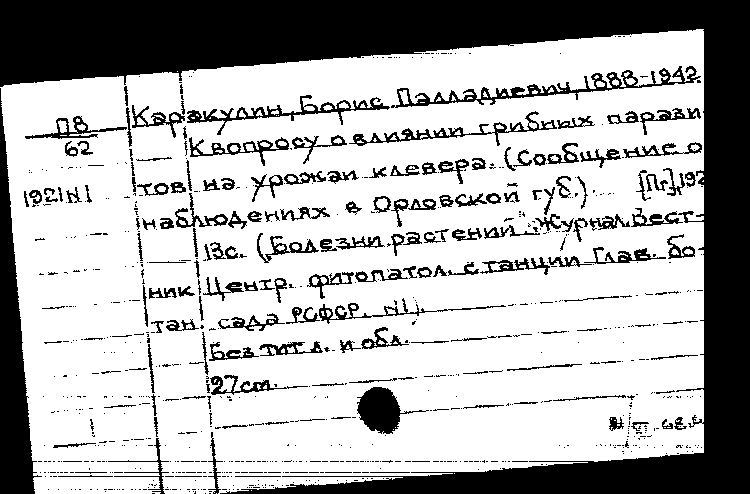 П8
62
1921 N1
Каракулин, Борис Палладиевич, 1888-1942
К вопросу о влиянии грибных парази-
тов на урожаи клевера. (Сообщение о
наблюдениях в Орловской губ.) [Пг], 192
13с. (Болезни растений. Журнал. Вест-
ник Центр. фитопатол. станции Глав. бо-
тан. сада РСФСР. N1).
Без тит. л. и обл.
27cm.